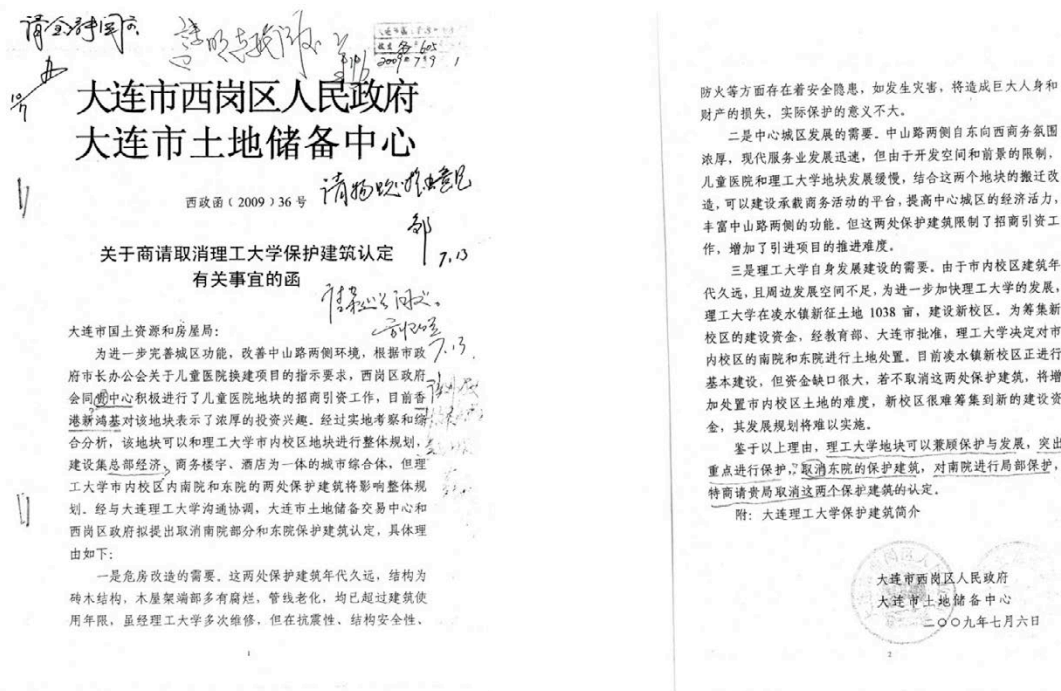 大连市西岗区人民政府
大连市土地储备中心
西政函（2009）36号
关于商请取消理工大学保护建筑认定
有关事宜的函
大连市国土资源和房屋局：
为进一步完善城区功能，改善中山路两侧环境，根据市政
府市长办公会关于儿童医院换建项目的指示要求，西岗区政府
会同贵中心积极进行了儿童医院地块的招商引资工作，目前香
港新鸿基对该地块表示了浓厚的投资兴趣。经过实地考察和综
合分析，该地块可以和理工大学市内校区地块进行整体规划，
建设集总部经济、商务楼宇、酒店为一体的城市综合体，但理
工大学市内校区内南院和东院的两处保护建筑将影响整体规
划。经与大连理工大学沟通协调，大连市土地储备交易中心和
西岗区政府拟提出取消南院部分和东院保护建筑认定，具体理
由如下：
一是危房改造的需要。这两处保护建筑年代久远，结构为
砖木结构，木屋架端部多有腐烂，管线老化，均已超过建筑使
用年限，虽经理工大学多次维修，但在抗震性、结构安全性、
1
防火等方面存在着安全隐患，如发生灾害，将造成巨大人身和
财产的损失，实际保护的意义不大。
二是中心城区发展的需要。中山路两侧自东向西商务氛围
浓厚，现代服务业发展迅速，但由于开发空间和前景的限制，
儿童医院和理工大学地块发展缓慢，结合这两个地块的搬迁改
造，可以建设承载商务活动的平台，提高中心城区的经济活力，
丰富中山路两侧的功能。但这两处保护建筑限制了招商引资工
作，增加了引进项目的推进难度。
三是理工大学自身发展建设的需要。由于市内校区建筑年
代久远，且周边发展空间不足，为进一步加快理工大学的发展，
理工大学在凌水镇新征土地 1038 亩，建设新校区。为筹集新
校区的建设资金，经教育部、大连市批准，理工大学决定对市
内校区的南院和东院进行土地处置。目前凌水镇新校区正进行
基本建设，但资金缺口很大，若不取消这两处保护建筑，将增
加处置市内校区土地的难度，新校区很难筹集到新的建设资
金，其发展规划将难以实施。
鉴于以上理由，理工大学地块可以兼顾保护与发展，突出
重点进行保护，取消东院的保护建筑，对南院进行局部保护，
特商请贵局取消这两个保护建筑的认定。
附：大连理工大学保护建筑简介
大连市西岗区人民政府
大连市土地储备中心
二〇〇九年七月六日
2